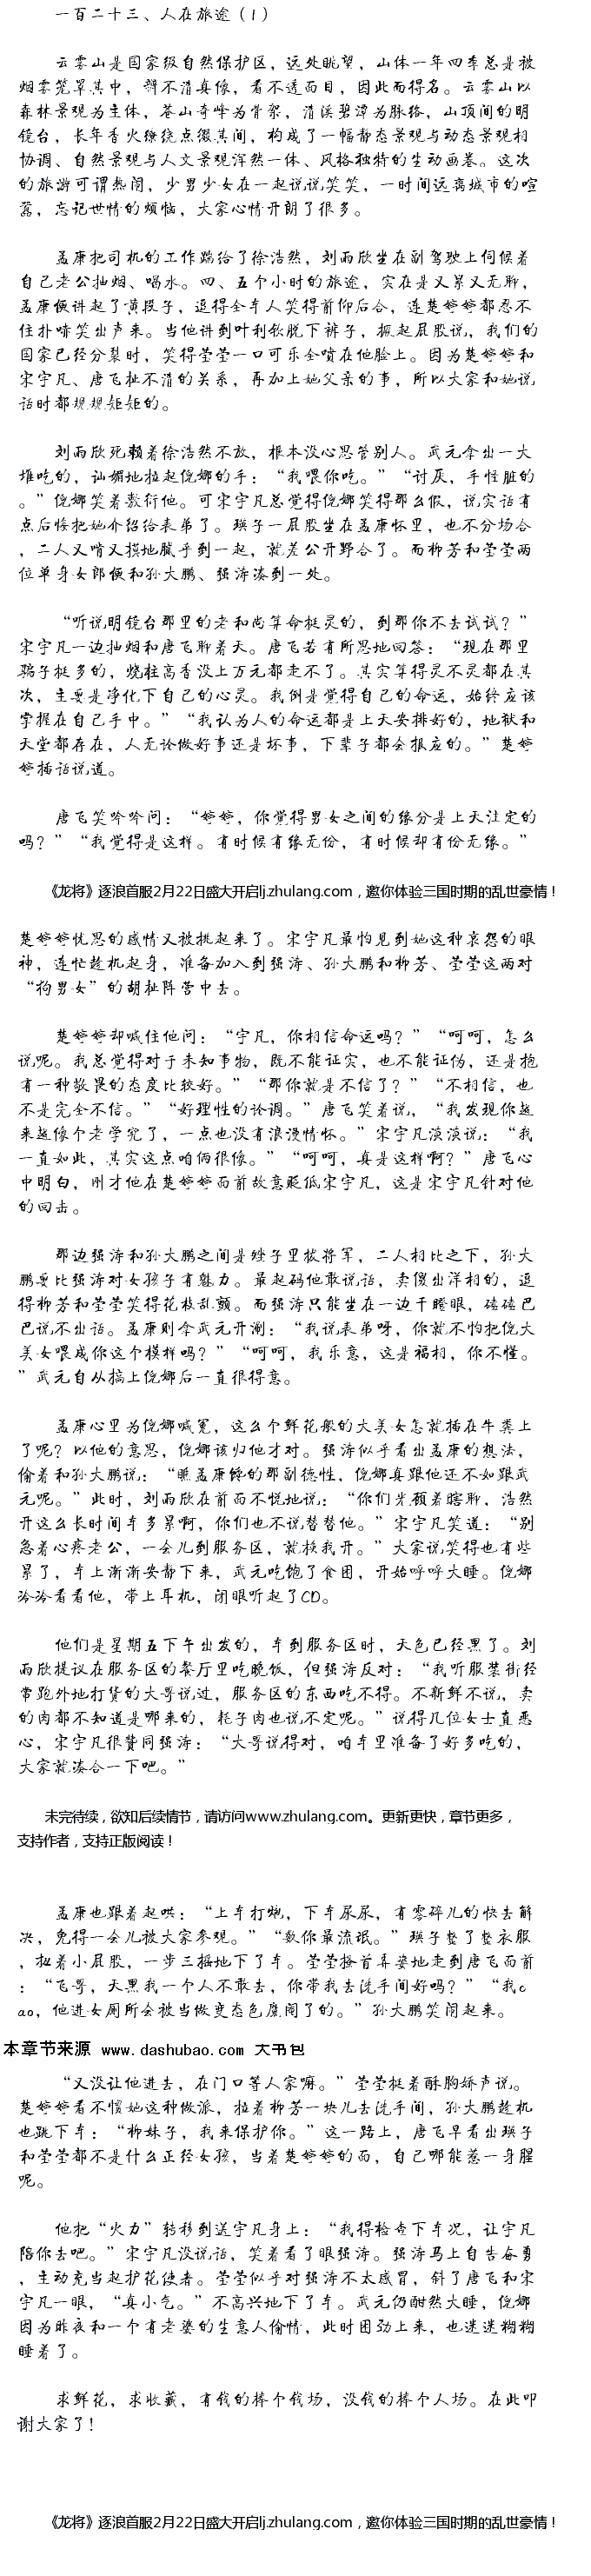 一百二十三、人在旅途（1）
云雾山是国家级自然保护区，远处眺望，山体一年四季总是被
烟雾笼罩其中，辨不清真像，看不透面目，因此而得名。云雾山以
森林景观为主体，苍山奇峰为骨架，清溪碧潭为脉络，山顶间的明
镜台，长年香火缭绕点缀其间，构成了一幅静态景观与动态景观相
协调、自然景观与人文景观浑然一体、风格独特的生动画卷。这次
的旅游可谓热闹，少男少女在一起说说笑笑，一时间远离城市的喧
嚣，忘记世情的烦恼，大家心情开朗了很多。
孟康把司机的工作踹给了徐浩然，刘雨欣坐在副驾驶上伺候着
自己老公抽烟、喝水。四、五个小时的旅途，实在是又累又无聊，
孟康便讲起了黄段子，逗得全车人笑得前仰后合，连楚婷婷都忍不
住扑哧笑出声来。当他讲到叶利钦脱下裤子，撅起屁股说，我们的
国家已经分裂时，笑得莹莹一口可乐全喷在他脸上。因为楚婷婷和
宋宇凡、唐飞扯不清的关系，再加上她父亲的事，所以大家和她说
话时都规规矩矩的。
刘雨欣死赖着徐浩然不放，根本没心思管别人。武元拿出一大
堆吃的，讪媚地拉起倪娜的手：“我喂你吃。”“讨厌，手怪脏的
。”倪娜笑着敷衍他。可宋宇凡总觉得倪娜笑得那么假，说实话有
点后悔把她介绍给表弟了。瑛子一屁股坐在孟康怀里，也不分场合
，二人又啃又摸地腻乎到一起，就差公开野合了。而柳芳和莹莹两
位单身女郎便和孙大鹏、强涛凑到一处。
“听说明镜台那里的老和尚算命挺灵的，到那你不去试试？”
宋宇凡一边抽烟和唐飞聊着天。唐飞若有所思地回答：“现在那里
骗子挺多的，烧柱高香没上万元都走不了。其实算得灵不灵都在其
次，主要是净化下自己的心灵。我倒是觉得自己的命运，始终应该
掌握在自己手中。”“我认为人的命运都是上天安排好的，地狱和
天堂都存在，人无论做好事还是坏事，下辈子都会报应的。”楚婷
婷插话说道。
唐飞笑吟吟问：“婷婷，你觉得男女之间的缘分是上天注定的
吗？”“我觉得是这样。有时候有缘无份，有时候却有份无缘。”
《龙将》逐浪首服2月22日盛大开启lj.zhulang.com，邀你体验三国时期的乱世豪情！
楚婷婷忧思的感情又被挑起来了。宋宇凡最怕见到她这种哀怨的眼
神，连忙趁机起身，准备加入到强涛、孙大鹏和柳芳、莹莹这两对
“狗男女”的胡扯阵营中去。
楚婷婷却喊住他问：“宇凡，你相信命运吗？”“呵呵，怎么
说呢。我总觉得对于未知事物，既不能证实，也不能证伪，还是抱
有一种敬畏的态度比较好。”“那你就是不信了？”“不相信，也
不是完全不信。”“好理性的论调。”唐飞笑着说，“我发现你越
来越像个老学究了，一点也没有浪漫情怀。”宋宇凡淡淡说：“我
一直如此，其实这点咱俩很像。”“呵呵，真是这样啊？”唐飞心
中明白，刚才他在楚婷婷面前故意贬低宋宇凡，这是宋宇凡针对他
的回击。
那边强涛和孙大鹏之间是矬子里拔将军，二人相比之下，孙大
鹏要比强涛对女孩子有魅力。最起码他敢说话，卖傻出洋相的，逗
得柳芳和莹莹笑得花枝乱颤。而强涛只能坐在一边干瞪眼，磕磕巴
巴说不出话。孟康则拿武元开涮：“我说表弟呀，你就不怕把倪大
美女喂成你这个模样吗？”“呵呵，我乐意，这是福相，你不懂。
”武元自从搞上倪娜后一直很得意。
孟康心里为倪娜喊冤，这么个鲜花般的大美女怎就插在牛粪上
了呢？以他的意思，倪娜该归他才对。强涛似乎看出孟康的想法，
偷着和孙大鹏说：“瞧孟康馋的那副德性，倪娜真跟他还不如跟武
元呢。”此时，刘雨欣在前面不悦地说：“你们光顾着瞎聊，浩然
开这么长时间车多累啊，你们也不说替替他。”宋宇凡笑道：“别
急着心疼老公，一会儿到服务区，就换我开。”大家说笑得也有些
累了，车上渐渐安静下来，武元吃饱了食困，开始呼呼大睡。倪娜
冷冷看看他，带上耳机，闭眼听起了CD。
他们是星期五下午出发的，车到服务区时，天色已经黑了。刘
雨欣提议在服务区的餐厅里吃晚饭，但强涛反对：“我听服装街经
常跑外地打货的大哥说过，服务区的东西吃不得。不新鲜不说，卖
的肉都不知道是哪来的，耗子肉也说不定呢。”说得几位女士直恶
心，宋宇凡很赞同强涛：“大哥说得对，咱车里准备了好多吃的，
大家就凑合一下吧。”
未完待续，欲知后续情节，请访问www.zhulang.com。更新更快，章节更多，
支持作者，支持正版阅读！
孟康也跟着起哄：“上车打炮，下车尿尿，有零碎儿的快去解
决，免得一会儿被大家参观。”“数你最流氓。”瑛子整了整衣服
，扭着小屁股，一步三摇地下了车。莹莹搔首弄姿地走到唐飞面前
：“飞哥，天黑我一个人不敢去，你带我去洗手间好吗？”“我c
ao，他进女厕所会被当做变态色魔阉了的。”孙大鹏笑闹起来。
本章节来源 www.dashubao.com 大书包
“又没让他进去，在门口等人家嘛。”莹莹挺着酥胸娇声说。
楚婷婷看不惯她这种做派，拉着柳芳一块儿去洗手间，孙大鹏趁机
也跳下车：“柳妹子，我来保护你。”这一路上，唐飞早看出瑛子
和莹莹都不是什么正经女孩，当着楚婷婷的面，自己哪能惹一身腥
呢。
他把“火力”转移到送宇凡身上：“我得检查下车况，让宇凡
陪你去吧。”宋宇凡没说话，笑着看了眼强涛。强涛马上自告奋勇
，主动充当起护花使者。莹莹似乎对强涛不太感冒，斜了唐飞和宋
宇凡一眼，“真小气。”不高兴地下了车。武元仍酣然大睡，倪娜
因为昨夜和一个有老婆的生意人偷情，此时困劲上来，也迷迷糊糊
睡着了。
求鲜花，求收藏，有钱的捧个钱场，没钱的捧个人场。在此叩
谢大家了！
《龙将》逐浪首服2月22日盛大开启lj.zhulang.com，邀你体验三国时期的乱世豪情！